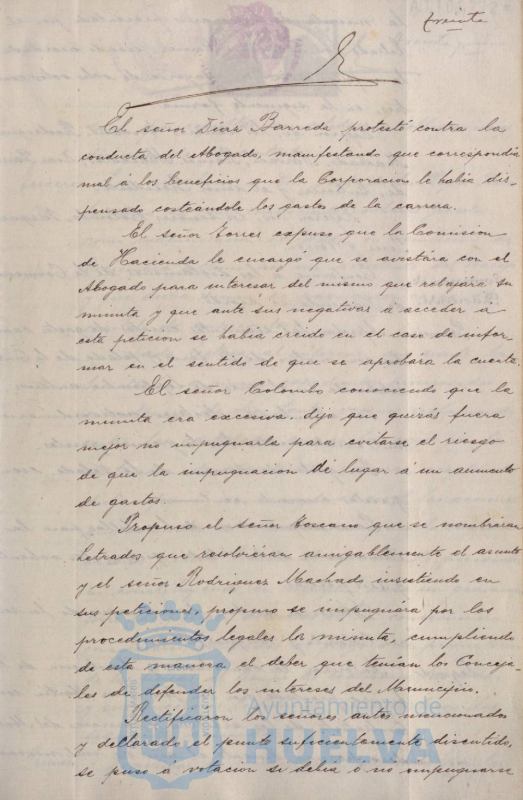 treinta
El señor Díaz Barreda protestó contra la
conducta del Abogado, manifestando que correspondía
mal á los beneficios que la Corporacion le habia dis-
pensado costeándole los gastos de la carrera.
El señor Torres expuso que la Comision
de Hacienda le encargó que se avistára con el
Abogado para interesar del mismo que rebajára su
minuta y que ante sus negativas á acceder á
esta peticion se habia creido en el caso de infor-
mar en el sentido de que se aprobára la cuenta.
El señor Colombo conociendo que la
minuta era excesiva, dijo que quizás fuera
mejor no impugnarla para evitarse el riesgo
de que la impugnacion dé lugar á un aumento
de gastos.
Propuso el señor Toscano que se nombráran
Letrados que resolviéran amigablemente el asunto
y el señor Rodriguez Machado insistiendo en
sus peticiones, propuso se impugnára por los
procedimientos legales la minuta, cumpliendo
de esta manera el deber que tenían los Conceja-
les de defender los intereses del Municipio.
Rectificaron los señores antes mencionados
y declarado el punto suficientemente discutido,
se puso á votacion si debia ó no impugnarse
Ayuntamiento de
HUELVA